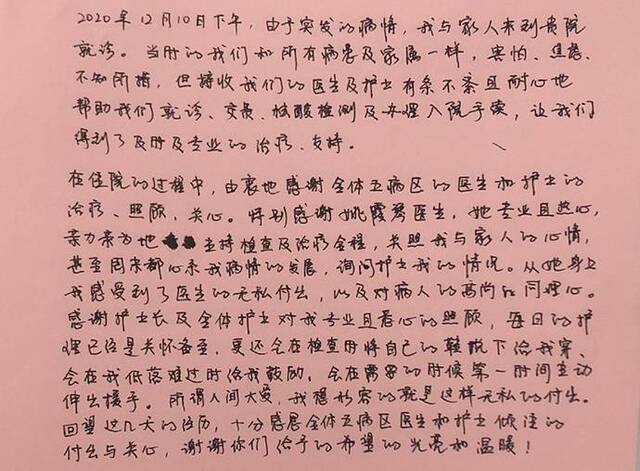 2020年12月10日下午，由于突发的病情，我与家人来到贵院
就诊。当时的我们和所有病患及家属一样，害怕、焦虑、
不知所措，但接收我们的医生及护士有条不紊且耐心地
帮助我们就诊、交费、核酸检测及办理入院手续，让我们
得到了及时及专业的治疗、支持。
在住院的过程中，由衷地感谢全体五病区的医生和护士的
治疗、照顾、关心。特别感谢姚霞医生，她专业且热心，
亲力亲为地主持检查及治疗全程，关照我与家人的心情，
甚至周末都心系我病情的发展，询问护士我的情况。从她身上
我感受到了医生的无私付出，以及对病人的高尚同理心。
感谢护士长及全体护士对我专业且着心的照顾，每日的护
理已经是关怀备至，更还会在检查时将自己的鞋脱下给我穿、
会在我低落难过时给我鼓励，会在需要的时候第一时间主动
伸出援手。所谓人间大爱，我想形容的就是这样无私的付出。
回望这几天的经历，十分感恩全体五病区医生和护士倾注的
付出与关心，谢谢你们给予的希望的光亮和温暖！